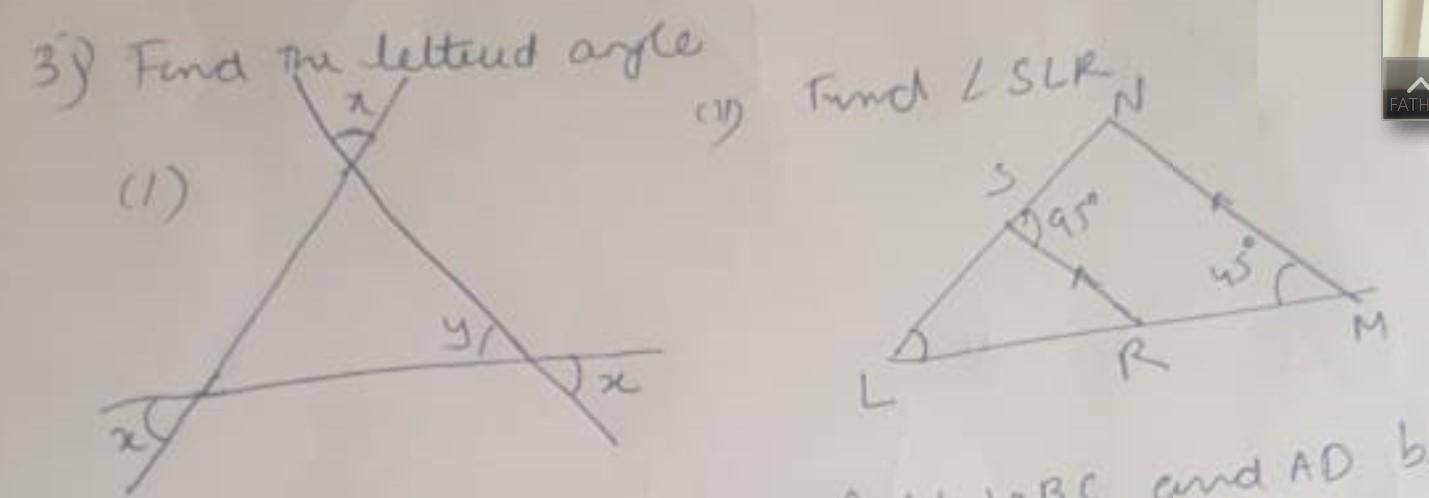 3) Find the lettered angle
(1)
x
y
x
x
(II) Find ∠SLR
N
S
95°
45°
L
R
M
BC and AD b
FATH